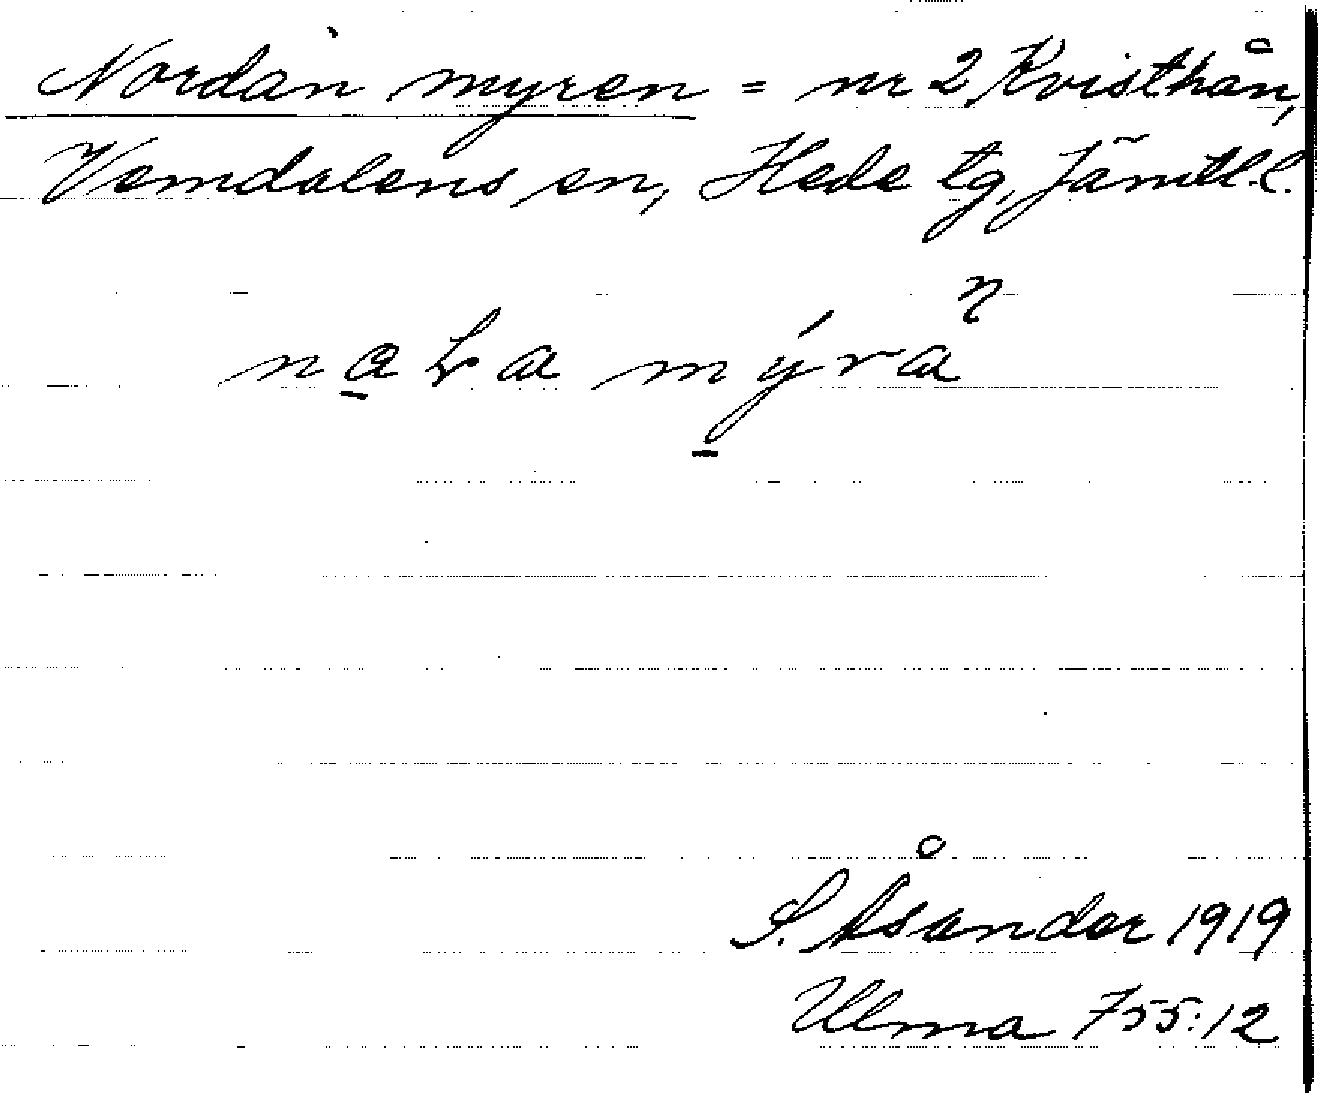 Nordàn myren = nr 2 Kvisthån,
Vemdalens sn, Hede tg, Jämtl.l.
mýra
S. Åsander 1919
Ulma 755:12